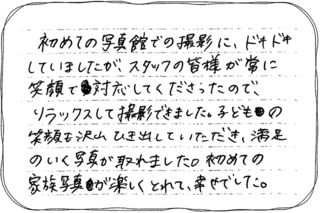 初めての写真館での撮影に、ドキドキ
していましたが、スタッフの皆様が常に
笑顔で対応してくださったので、
リラックスして撮影できました。子どもの
笑顔も沢山ひき出していただき、満足
のいく写真が取れました。初めての
家族写真が楽しくとれて、幸せでした。